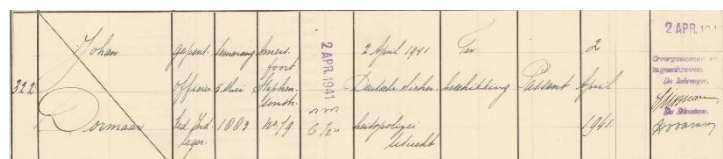 322
Johan
Dormaar
gepens.
Officier
Ned. Ind.
leger.
Semarang
5 Mei
1883
Amers-
foort
Stephen-
sonstr.
No 79
2 APR. 1941
2 April 1941
Deutsche Sicher-
heitspolizei
Utrecht
Ter
beschikking
Passant
2
April
1941.
2 APR. 1941
Overgenomen en
ingeschreven.
De Schrijver.
De Directeur.